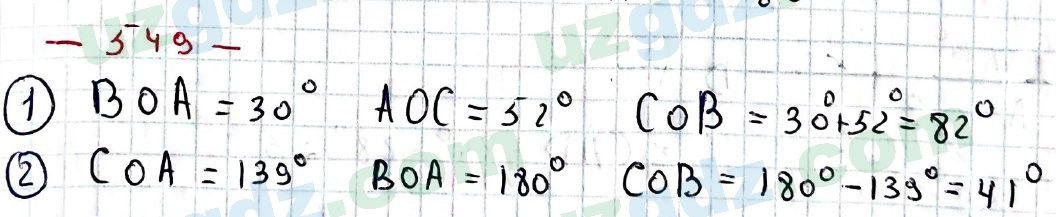 — 549 —
① BOA = 30° AOC = 52° COB = 30°+52° = 82°
② COA = 139° BOA = 180° COB = 180° - 139° = 41°
uzgdz.com